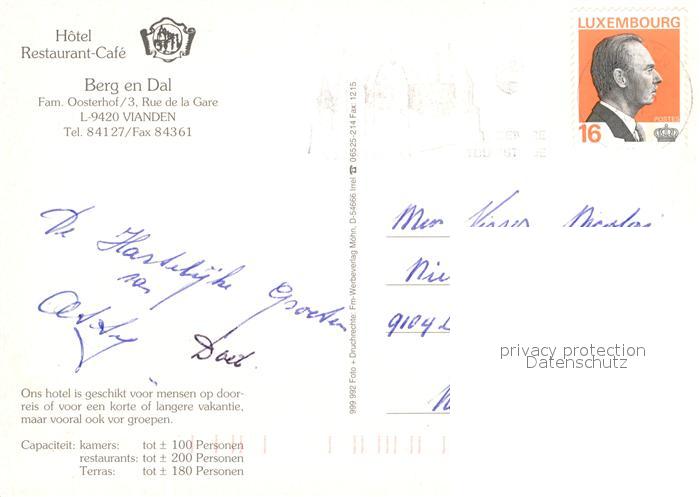 Hôtel
Restaurant-Café
Berg en Dal
Fam. Oosterhof/3, Rue de la Gare
L-9420 VIANDEN
Tel. 84127/Fax 84361
LUXEMBOURG
POSTES
16
999.992 Foto + Druckrechte: Fm-Werbeverlag Möhn, D-54666 Irrel ☎ 06525-214 Fax 1215
De Hartelijke Groeten
van
Doet.
Mevr Visser
Nie
9104
privacy protection
Datenschutz
Ons hotel is geschikt voor mensen op door-
reis of voor een korte of langere vakantie,
maar vooral ook vor groepen.
Capaciteit: kamers: tot ± 100 Personen
restaurants: tot ± 200 Personen
Terras: tot ± 180 Personen